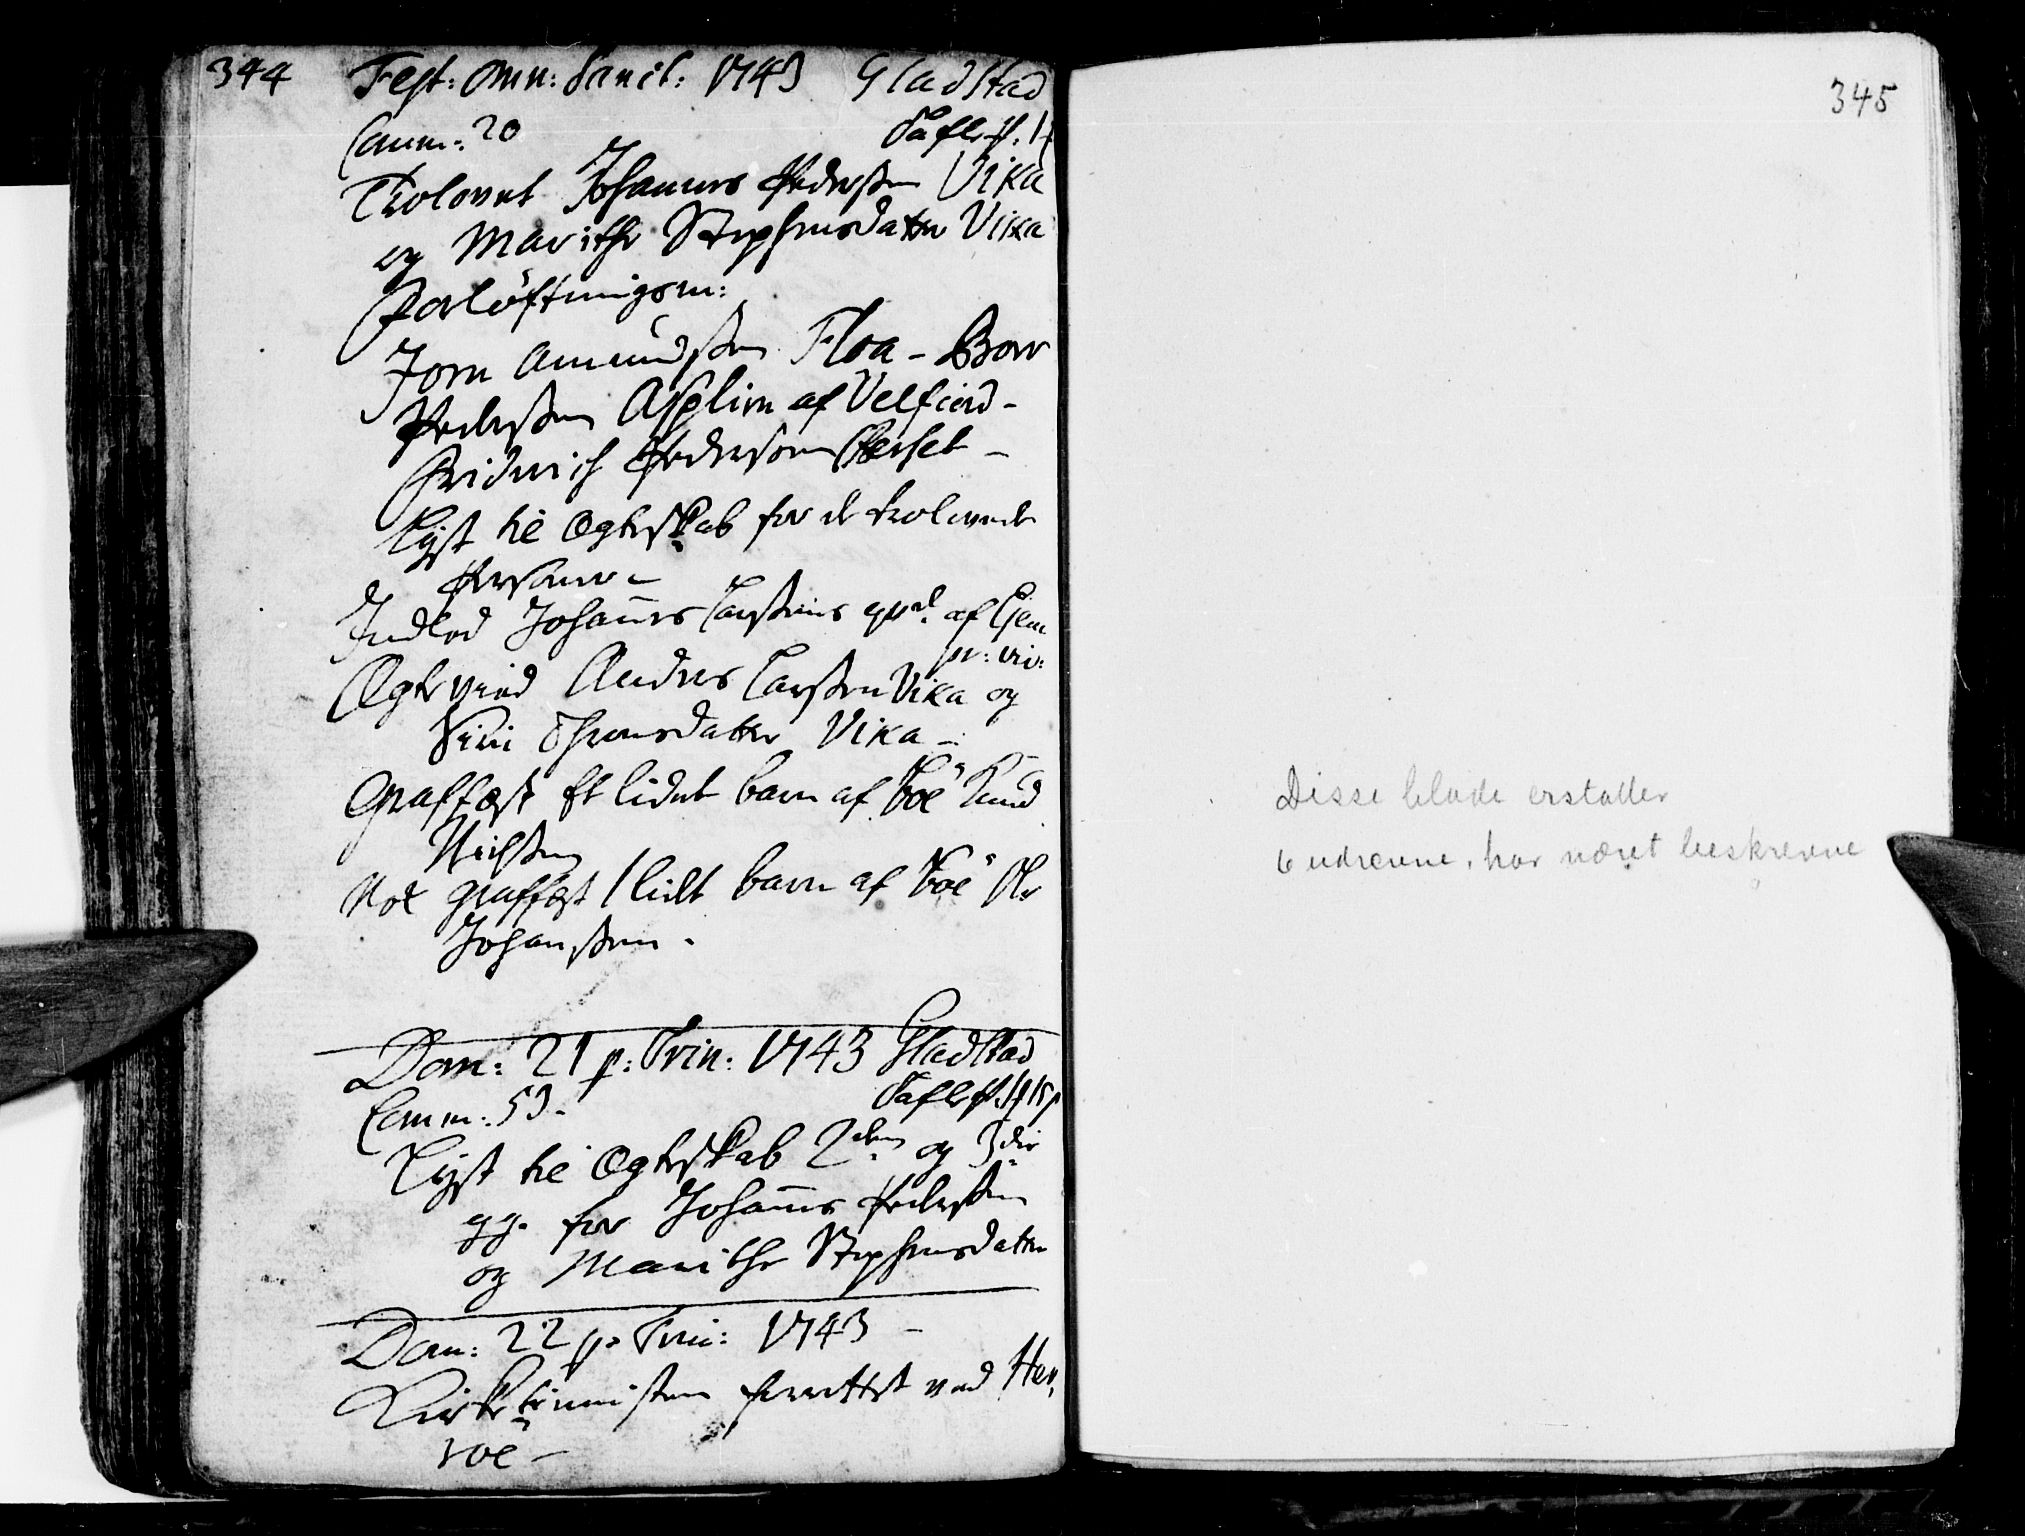 344 Fest: Omn: Sanct: 1743 Gladstad
Comm: 20 Tafle p. 1
Trolovet Johannes Pedersen Vika
og Marithe Stephensdatter Vika
Forløftningsm:
Jorn Amundsen Floa - Boor
Pedersen Asplien af Velfiord -
Fridrich Pedersøn
Lyst til Ægteskab for de trolovede
Persuner -
Indled Johannes Larsens qvd. af Hiem
Ægtevied Anders Larsen Vika og
Siri Thomsdatter Vika -
Graffæst Et lidet barn af Boë Knud
Nielsen
Nok graffæst 1 lidt barn af Boë Ole
Johansen.
Dom: 21 p: Trin: 1743 Gladstad
Comm: 53 - Tafle p.
Lyst til Ægteskab 2den og 3die
gg. for Johannes Pedersen
og Marithe Stephensdatter
Dom: 22 p: Trin: 1743 -
Kirketienisten forrettet ved Her,
röe -
345
Disse blade erstatter
6 udrevne, har været beskrevne